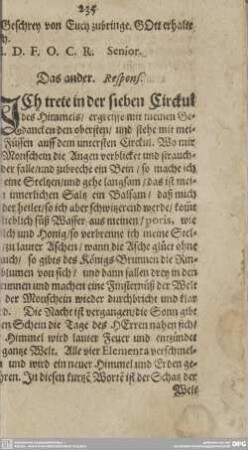 235
Geschrey von Euch zubringe. GOtt erhalte
ch.
. D. F. O. C. R. Senior.
Das ander. Respons.
ICh trete in der sieben Circkul
des Himmels / ergreiffe mit meinen Ge-
dancken den obersten / und stehe mit mei-
Füssen auff dem untersten Circkul. Wo mir
Monschein die Augen verblicket und strauch-
der falle / und zubreche ein Bein / so mache ich
eine Steltzen / und gehe langsam / das ist mei-
n innerlichen Saltz ein Balsam / daß mich
der heilet / so ich aber schwitzend werde / kömt
lieblich süß Wasser aus meinen / poris, wie
lch und Honig / so verbrenne ich meine Stel-
zu lauter Aschen / wann die Asche glüet ohne
auch / so gibts des Königs Brunnen die
blumen von sich / und dann fallen drey in den
runnen und machen eine Finsternüß der Welt
der Monschein wieder durchbricht und klar
d. Die Nacht ist vergangen / die Sonn gibt
en Schein die Tage des HErren nahen sich
Himmel wird lauter Feuer und entzündet
gantze Welt. Alle vier Elementa verschmel-
n und wird ein neuer Himmel und Erden ge-
hren. In diesen kurtzē Wortē ist der Schatz der
Welt